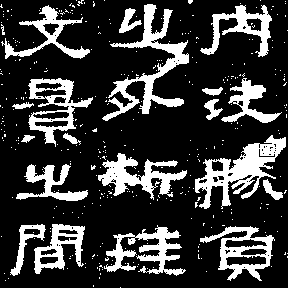 内決勝負
之外析珪
文景之間